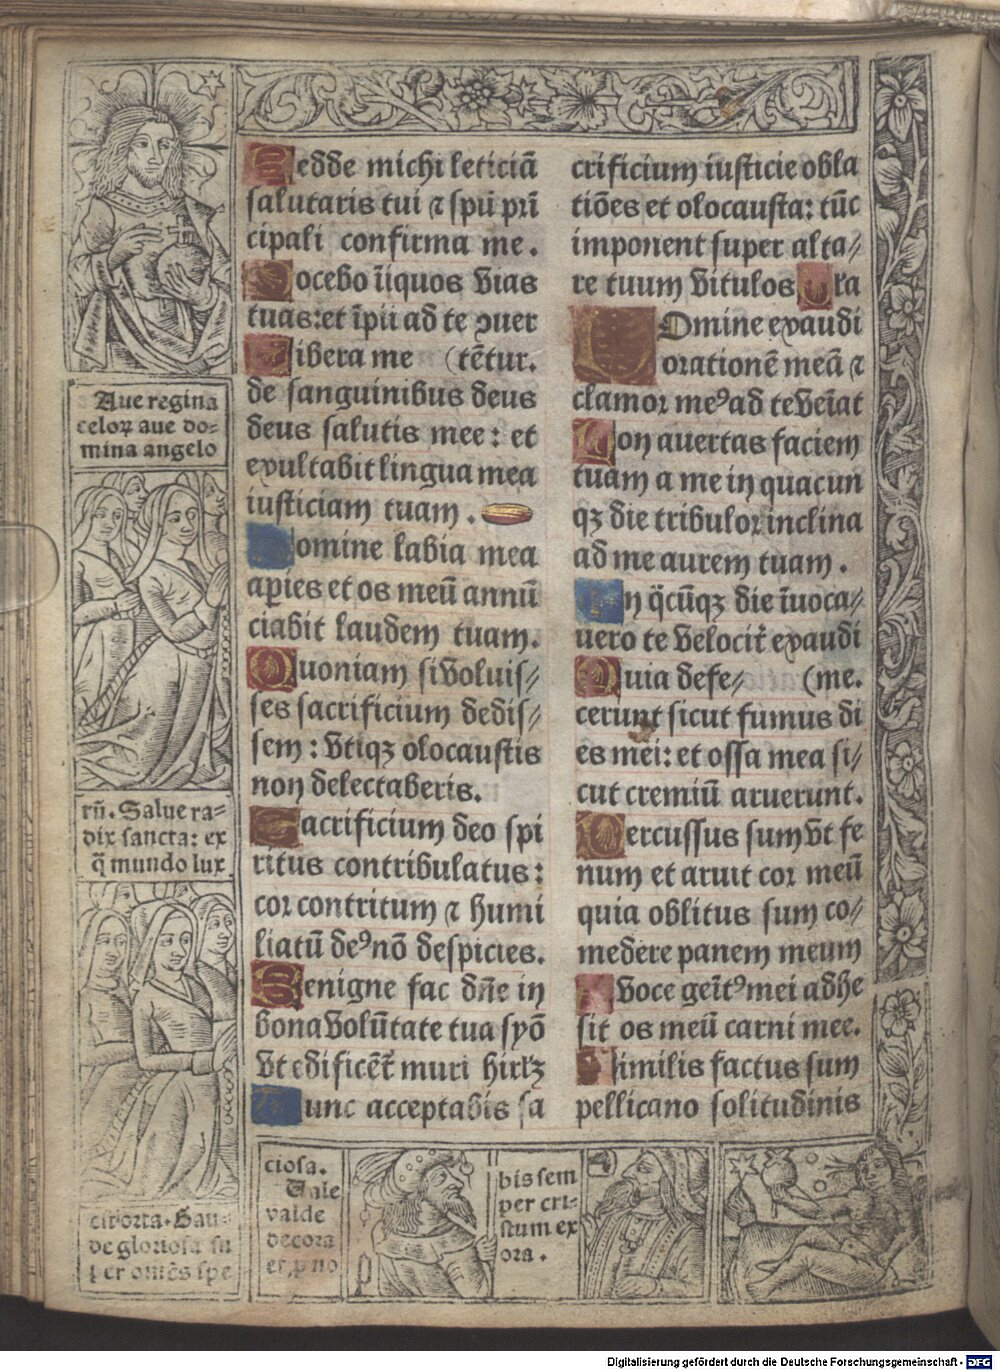 Redde michi leticiā
salutaris tui ⁊ spū pri̅
cipali confirma me.
Docebo i̅iquos vias
tuas: et i̅pii ad te ꝯuer
Libera me (te̅tur.
de sanguinibus deus
deus salutis mee: et
exultabit lingua mea
iusticiam tuam.
Domine labia mea
aꝑies et os meū annū
ciabit laudem tuam.
Quoniam si voluis⸗
ses sacrificium dedis⸗
sem: vtiqꝫ olocaustis
non delectaberis.
Sacrificium deo spi
ritus contribulatus:
cor contritum ⁊ humi
liatū deꝰ nō despicies.
Benigne fac dn̅e in
bona volūtate tua syō
vt edificēt᷑ muri hirlꝫ
Tunc acceptabis sa
crificium iusticie obla
tiōes et olocausta: tūc
imponent super alta⸗
re tuum vitulos Ora
Domine exaudi
orationē meā ⁊
clamor meꝰ ad te veīat
Non auertas faciem
tuam a me in quacun
qꝫ die tribulor inclina
ad me aurem tuam.
In q̄cūqꝫ die īuoca⸗
uero te velocit᷑ exaudi
Quia defe⸗ (me.
cerunt sicut fumus di
es mei: et ossa mea si⸗
cut cremiū aruerunt.
Percussus sum vt fe
num et aruit cor meū
quia oblitus sum co⸗
medere panem meum
A voce geīt᷑ꝰ mei adhe
sit os meū carni mee.
Similis factus sum
pellicano solitudinis
Aue regina
celoꝝ aue do⸗
mina angelo
rū. Salue ra⸗
dix sancta: ex
q̄ mundo lux
est orta. Gau⸗
de gloriosa su
ꝑ er omēs spe
ciosa.
Vale
valde
decora
et, ꝓ no
bis sem
per cri⸗
stum ex
ora.
Digitalisierung gefördert durch die Deutsche Forschungsgemeinschaft - DFG